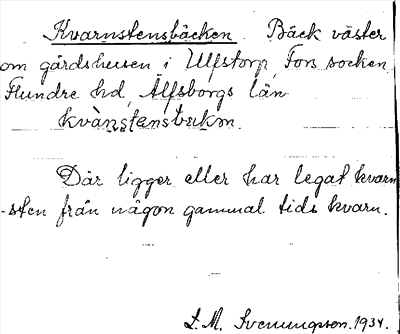 Kvarnstensbäcken. Bäck väster
om gårdshusen i Ulfstorp, Fors socken
Flundre hd, Älfsborgs län
kvànstensbækm.
Där ligger eller har legat kvarn
-sten från någon gammal tids kvarn.
L. M. Svenungsson. 1934.